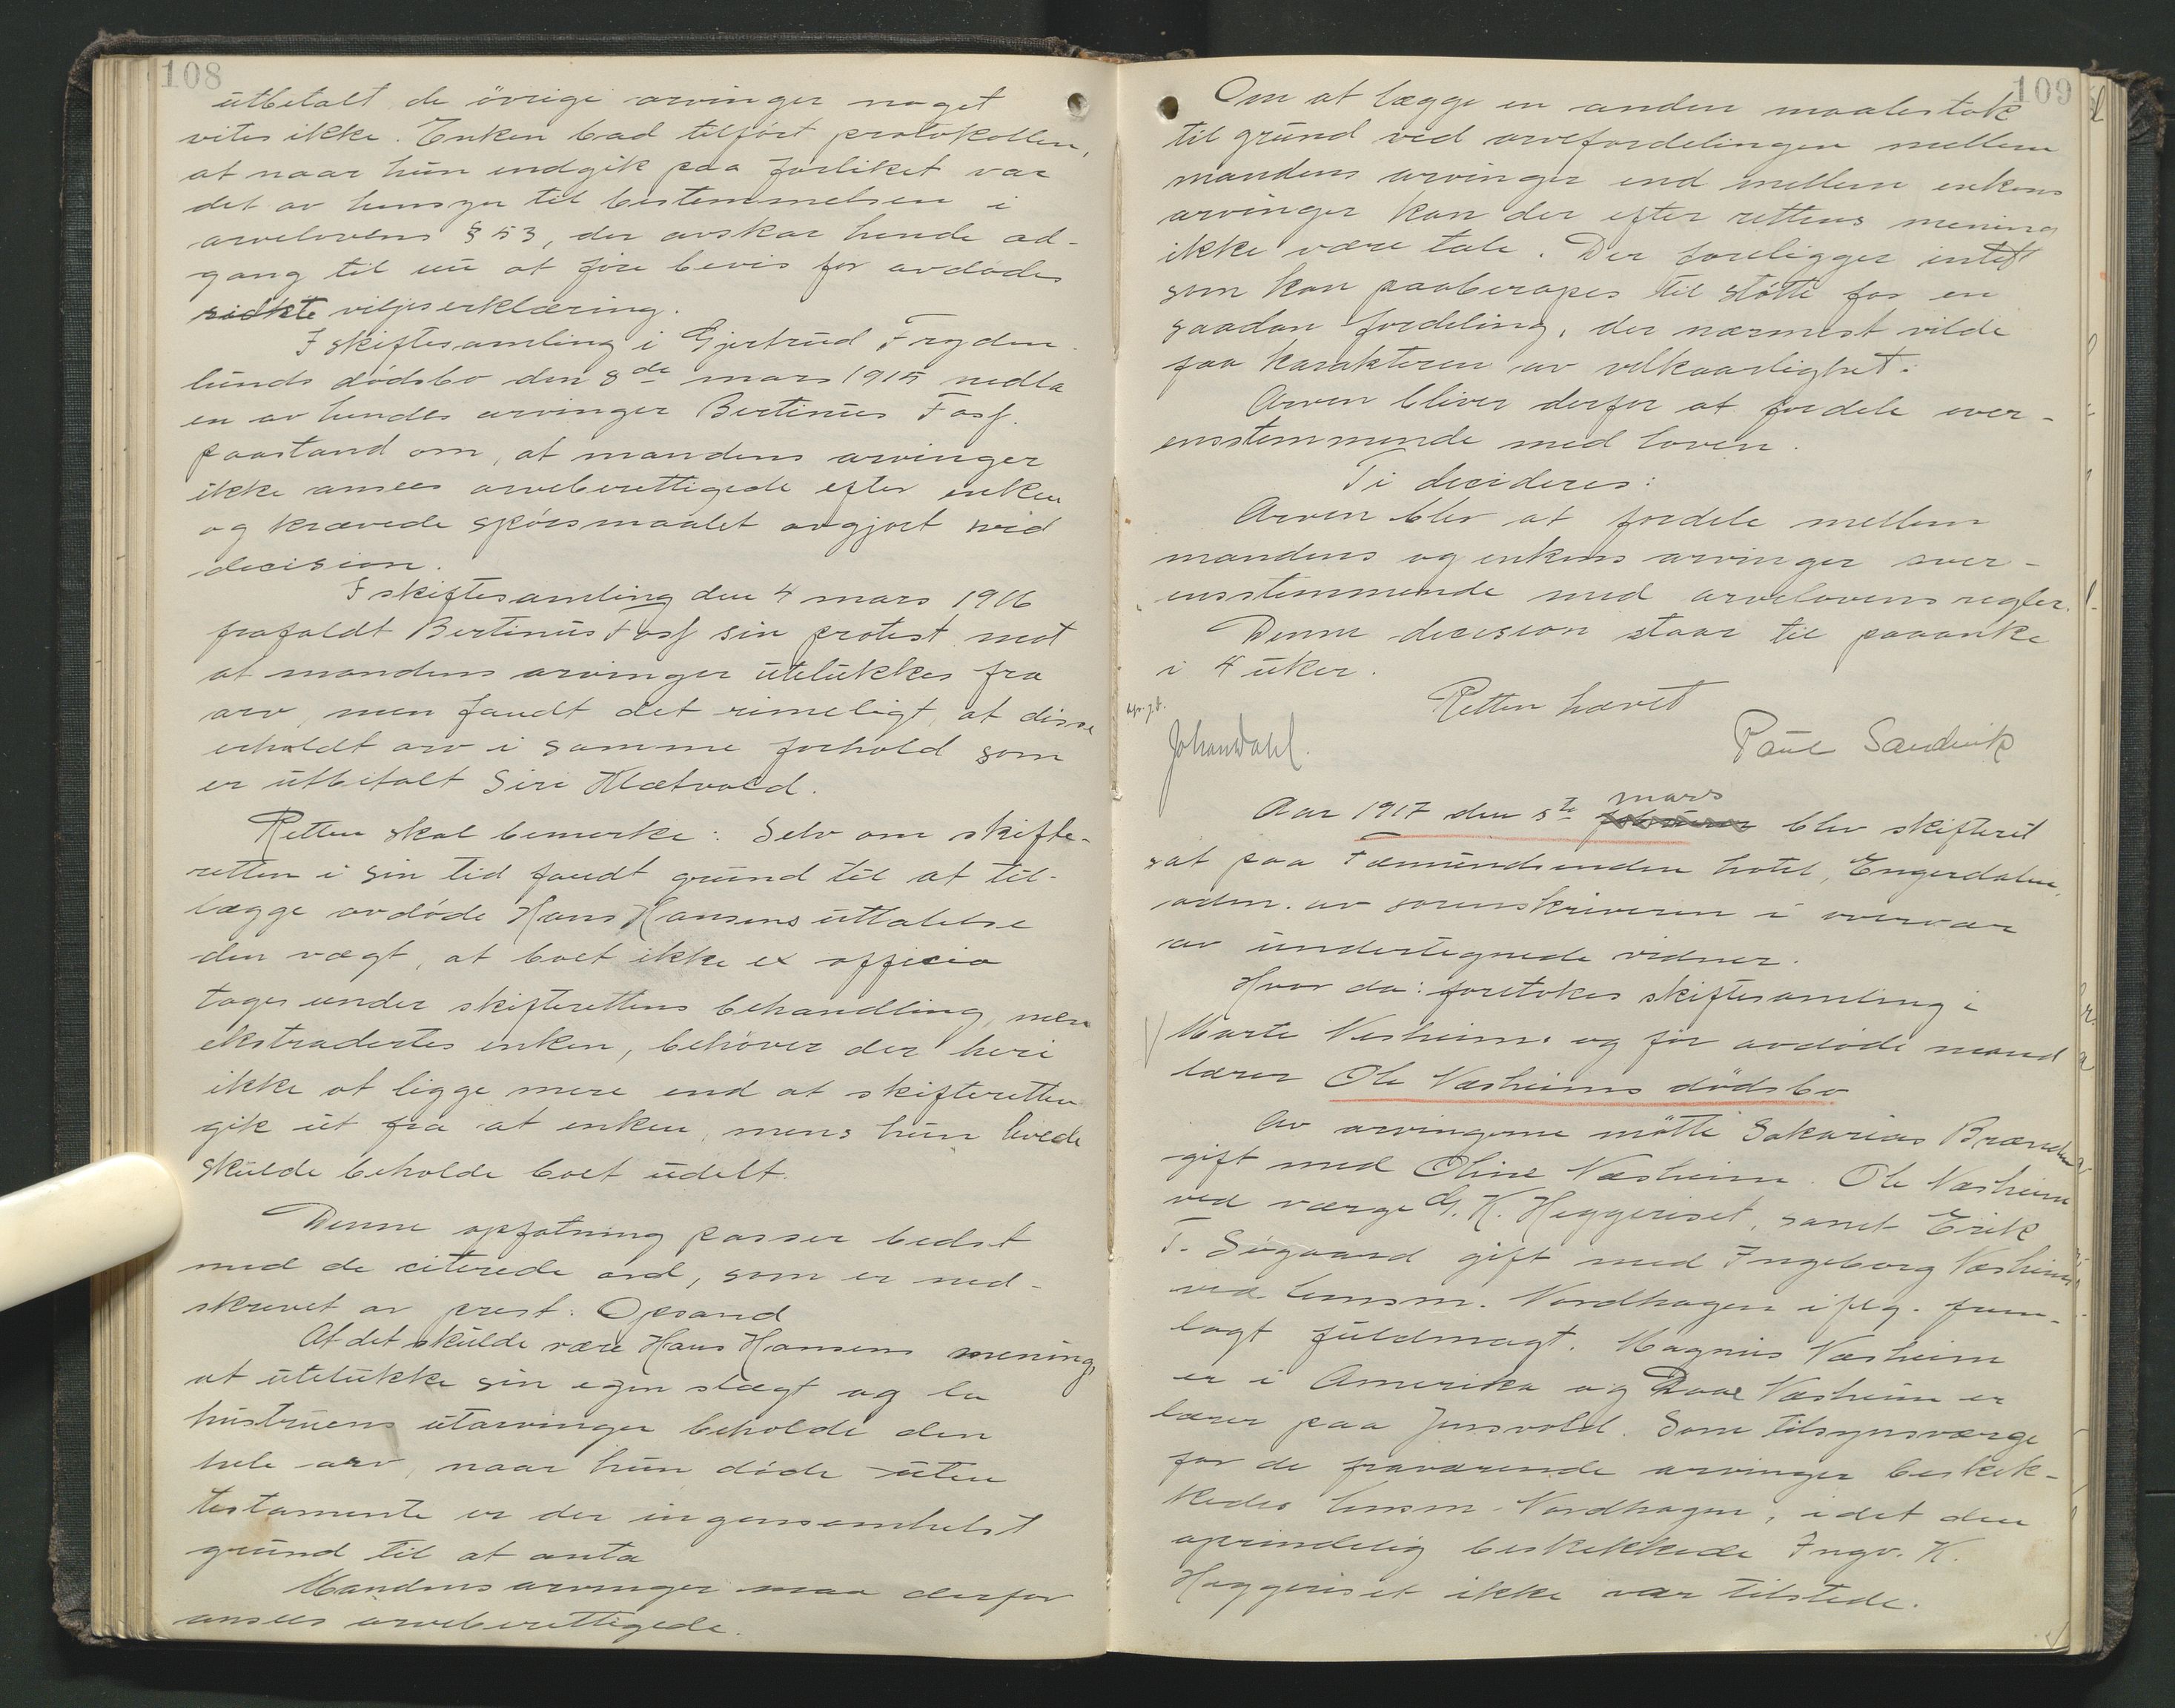 108
utbetalt de övrige arvinger noget
vites ikke. Enken bad tilført protokollen,
at naar hun indgik paa forliket var
det av hensyn til bestemmelsen i
arvelovens § 53, der avskar hende ad-
gang til nu at føre bevis for avdødes
sidste viljeserklæring.
I skiftesamling i Gjertrud Fryden-
lunds dødsbo den 8de mars 1915 nedla
en av hendes arvinger Bertinus Foss
paastand om, at mandens arvinger
ikke ansees arveberettigede efter enken
og krævede spörsmaalet avgjort ved
decision.
I skiftesamling den 4 mars 1916
frafaldt Bertinus Foss sin protest mot
at mandens arvinger utelukkes fra
arv, men fandt det rimeligt, at disse
erholdt arv i samme forhold som
er utbetalt Siri Klætvold.
Retten skal bemerke: Selv om skifte-
retten i sin tid fandt grund til at til-
lægge avdøde Hans Hansens uttalelse
den vægt, at boet ikke ex officio
toges under skifterettens behandling, men
ekstradertes enken, behöver der heri
ikke at ligge mere end at skifteretten
gik ut fra at enken, mens hun levede
skulde beholde boet udelt.
Denne opfatning passer bedst
med de citerede ord, som er ned-
skrevet av prest. Opsand
At det skulde være Hans Hansens mening
at utelukke sin egen slægt og la
hustruens utarvinger beholde den
hele arv, naar hun døde uten
testamente er der ingensomhelst
grund til at anta
Mandens arvinger maa derfor
ansees arveberettigede.
109
Om at lægge en anden maalestok
til grund ved arvefordelingen mellem
mandens arvinger end mellem enkens
arvinger kan der efter rettens mening
ikke være tale. Der foreligger intet
som kan paaberopes til støtte for en
saadan fordeling, der nærmest vilde
faa karakteren av vilkaarlighet.
Arven bliver derfor at fordele over-
ensstemmende med loven.
Ti decideres:
Arven blir at fordele mellem
mandens og enkens arvinger over-
ensstemmende med arvelovens regler.
Denne decision staar til paaanke
i 4 uker.
Retten hævet
Paul Sandvik
Johan Dahl.
mars
Aar 1917 den 5te februar blev skifteret
sat paa Fæmundsenden hotel, Engerdalen,
adm. av sorenskriveren i overvær
av undertegnede vidner.
Hvor da: foretokes skiftesamling i
Marte Næsheims og før avdøde mand
lærer Ole Næsheims dødsbo
Av arvingerne møtte Sakarias Brænden
gift med Oline Næsheim. Ole Næsheim
ved værge G. K. Heggeriset, samt Erik
T. Søgaard gift med Ingeborg Næsheim
ved lensm. Nordhagen ifølg. frem-
lagt fuldmagt. Magnus Næsheim
er i Amerika og Næsheim er
lærer paa Jensvold. Som tilsynsværge
for de fraværende arvinger beskik-
kedes lensm. Nordhagen, idet den
oprindelig beskikkede Ingv. K.
Heggeriset ikke var tilstede.